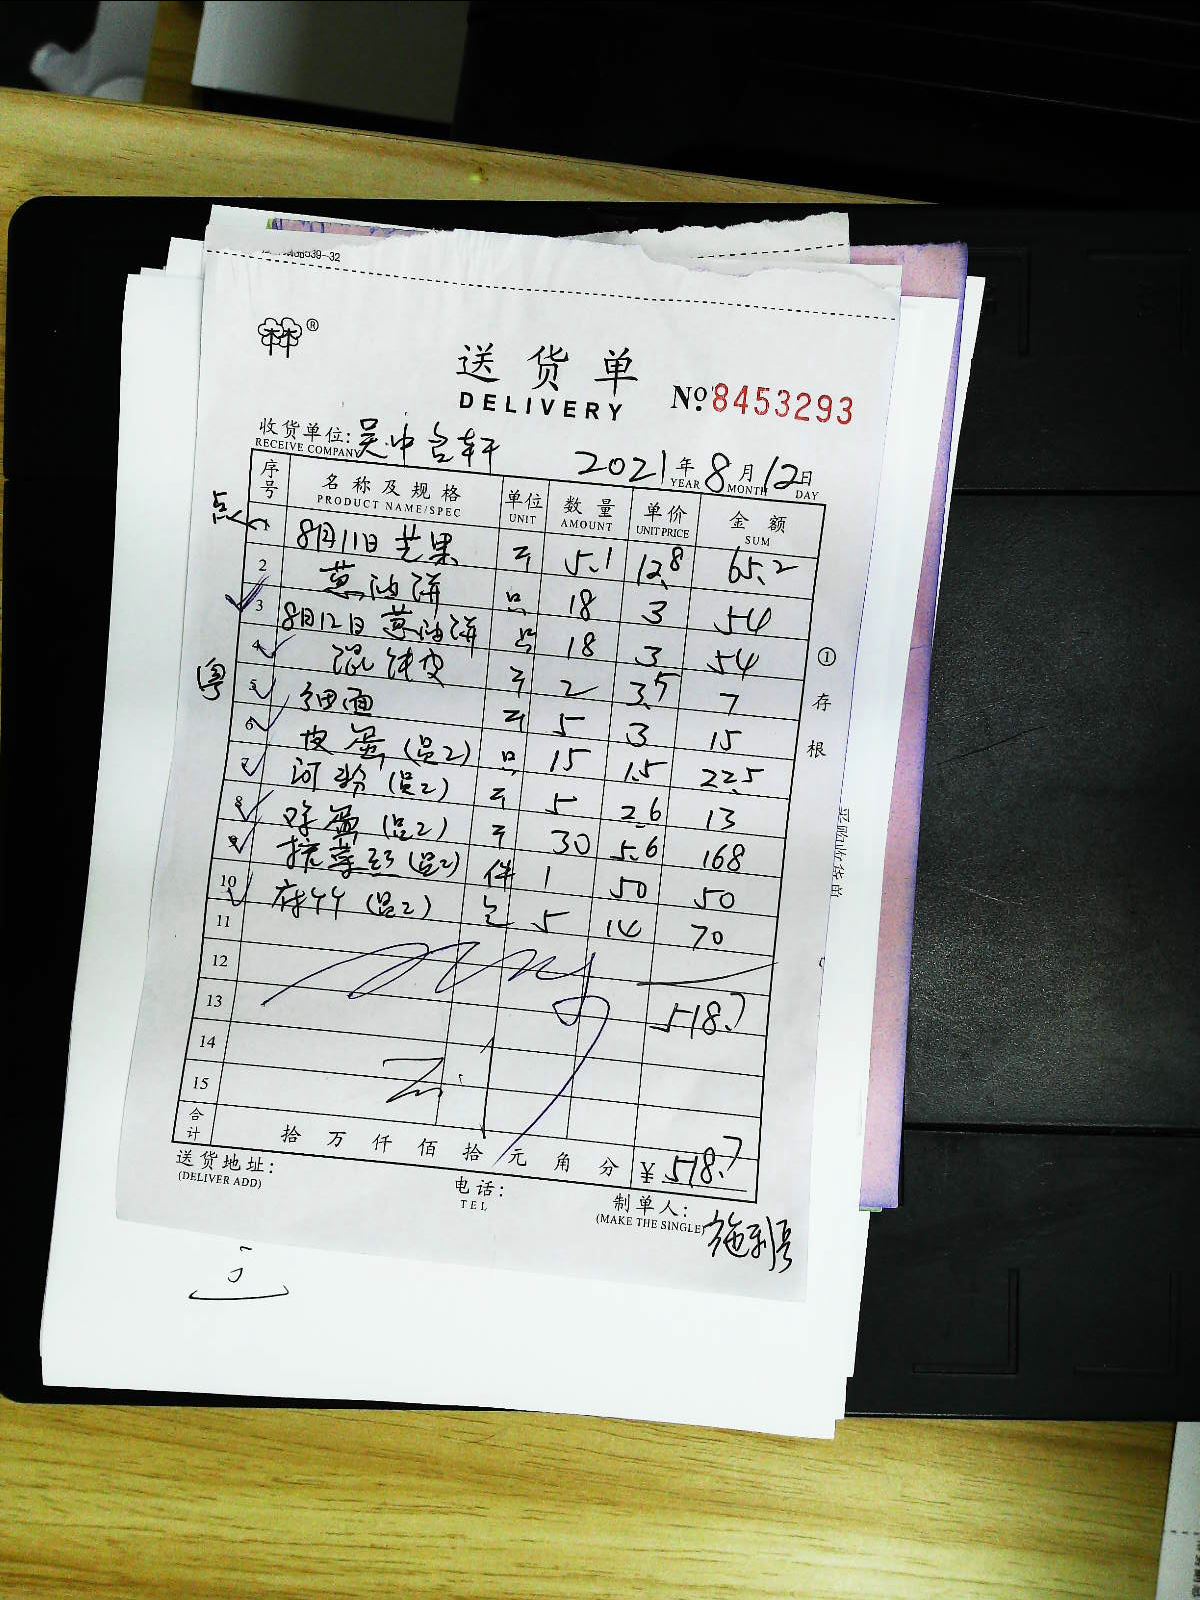 送货单
DELIVERY
No. 8453293
收货单位: 吴中台轩
RECEIVE COMPANY
2021年8月12日
YEAR MONTH DAY
序号 名称及规格 单位 数量 单价 金额
PRODUCT NAME/SPEC UNIT AMOUNT UNIT PRICE SUM
点
1 8月11日 芒果 斤 5.1 12.8 65.2
2 葱油饼 只 18 3 54
3 8月12日 葱油饼 只 18 3 54
4 混饨皮 斤 2 3.5 7
粤
5 细面 斤 5 3 15
6 皮蛋(员2) 只 15 1.5 22.5
7 河粉(员2) 斤 5 2.6 13
8 (员2) 斤 30 5.6 168
9 榨菜丝(员2) 件 1 50 50
10 (员2) 包 5 14 70
11
12
13 518.7
14
15
合计 拾 万 仟 佰 拾 元 角 分 ¥518.7
送货地址:
(DELIVER ADD)
电话:
TEL
制单人:
(MAKE THE SINGLE)
①存根
采购收货单